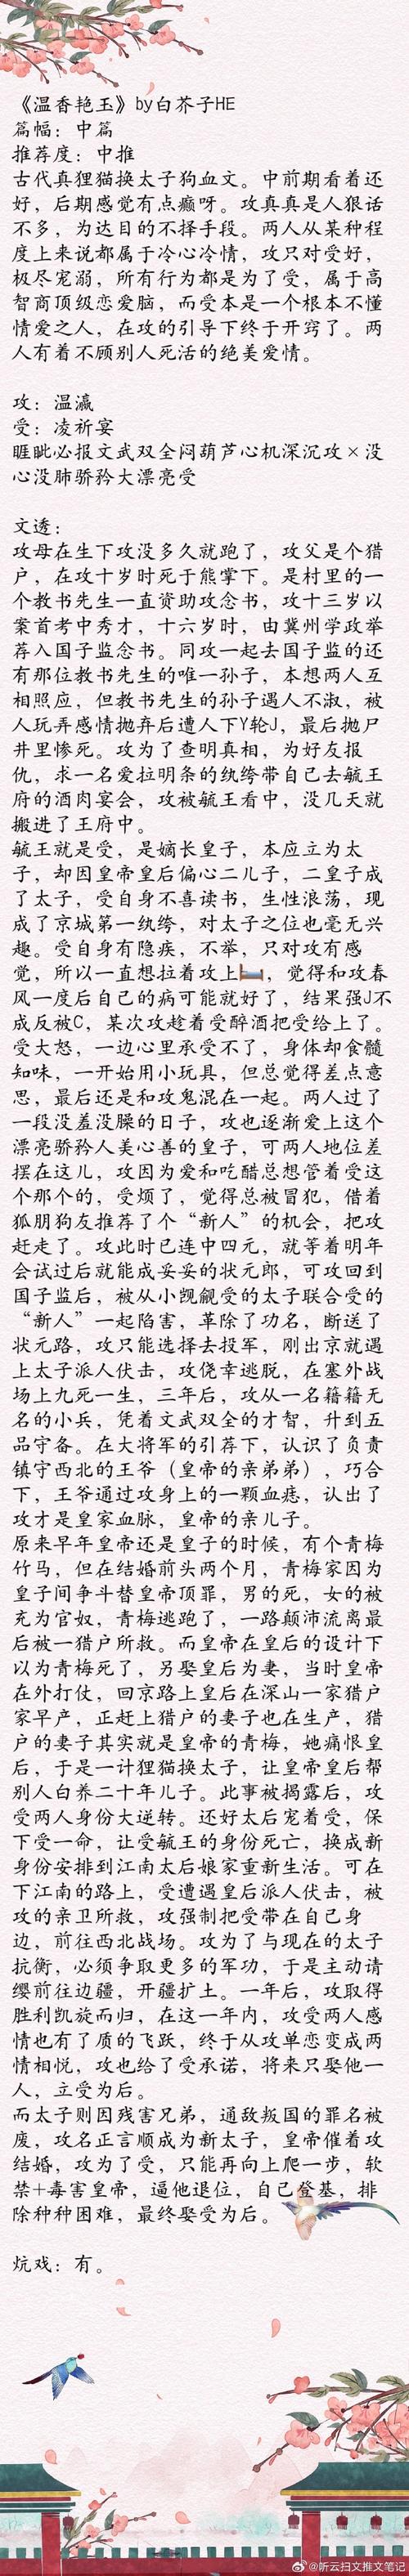 《温香艳玉》by白芥子HE
篇幅：中篇
推荐度：中推
古代真狸猫换太子狗血文。中前期看着还
好，后期感觉有点癫呀。攻真真是人狠话
不多，为达目的不择手段。两人从某种程
度上来说都属于冷心冷情，攻只对受好，
极尽宠溺，所有行为都是为了受，属于高
智商顶级恋爱脑，而受本是一个根本不懂
情爱之人，在攻的引导下终于开窍了。两
人有着不顾别人死活的绝美爱情。
攻：温瀛
受：凌祈宴
睚眦必报文武双全闷葫芦心机深沉攻×没
心没肺骄矜大漂亮受
文透：
攻母在生下攻没多久就跑了，攻父是个猎
户，在攻十岁时死于熊掌下。是村里的一
个教书先生一直资助攻念书，攻十三岁以
案首考中秀才，十六岁时，由冀州学政举
荐入国子监念书。同攻一起去国子监的还
有那位教书先生的唯一孙子，本想两人互
相照应，但教书先生的孙子遇人不淑，被
人玩弄感情抛弃后遭人下Y轮J，最后抛尸
井里惨死。攻为了查明真相，为好友报
仇，求一名爱拉明条的纨绔带自己去毓王
府的酒肉宴会，攻被毓王看中，没几天就
搬进了王府中。
毓王就是受，是嫡长皇子，本应立为太
子，却因皇帝皇后偏心二儿子，二皇子成
了太子，受自身不喜读书，生性浪荡，现
成了京城第一纨绔，对太子之位也毫无兴
趣。受自身有隐疾，不举，只对攻有感
觉，所以一直想拉着攻上🛏，觉得和攻春
风一度后自己的病可能就好了，结果强J不
成反被C，某次攻趁着受醉酒把受给上了。
受大怒，一边心里承受不了，身体却食髓
知味，一开始用小玩具，但总觉得差点意
思，最后还是和攻鬼混在一起。两人过了
一段没羞没臊的日子，攻也逐渐爱上这个
漂亮骄矜人美心善的皇子，可两人地位差
摆在这儿，攻因为爱和吃醋总想管着受这
个那个的，受烦了，觉得总被冒犯，借着
狐朋狗友推荐了个“新人”的机会，把攻
赶走了。攻此时已连中四元，就等着明年
会试过后就能成妥妥的状元郎，可攻回到
国子监后，被从小觊觎受的太子联合受的
“新人”一起陷害，革除了功名，断送了
状元路，攻只能选择去投军，刚出京就遇
上太子派人伏击，攻侥幸逃脱，在塞外战
场上九死一生，三年后，攻从一名籍籍无
名的小兵，凭着文武双全的才智，升到五
品守备。在大将军的引荐下，认识了负责
镇守西北的王爷（皇帝的亲弟弟），巧合
下，王爷通过攻身上的一颗血痣，认出了
攻才是皇家血脉，皇帝的亲儿子。
原来早年皇帝还是皇子的时候，有个青梅
竹马，但在结婚前头两个月，青梅家因为
皇子间争斗替皇帝顶罪，男的死，女的被
充为官奴，青梅逃跑了，一路颠沛流离最
后被一猎户所救。而皇帝在皇后的设计下
以为青梅死了，另娶皇后为妻，当时皇帝
在外打仗，回京路上皇后在深山一家猎户
家早产，正赶上猎户的妻子也在生产，猎
户的妻子其实就是皇帝的青梅，她痛恨皇
后，于是一计狸猫换太子，让皇帝皇后帮
别人白养二十年儿子。此事被揭露后，攻
受两人身份大逆转。还好太后宠着受，保
下受一命，让受毓王的身份死亡，换成新
身份安排到江南太后娘家重新生活。可在
下江南的路上，受遭遇皇后派人伏击，被
攻的亲卫所救，攻强制把受带在自己身
边，前往西北战场。攻为了与现在的太子
抗衡，必须争取更多的军功，于是主动请
缨前往边疆，开疆扩土。一年后，攻取得
胜利凯旋而归，在这一年内，攻受两人感
情也有了质的飞跃，终于从攻单恋变成两
情相悦，攻也给了受承诺，将来只娶他一
人，立受为后。
而太子则因残害兄弟，通敌叛国的罪名被
废，攻名正言顺成为新太子，皇帝催着攻
结婚，攻为了受，只能再向上爬一步，软
禁+毒害皇帝，逼他退位，自己登基，排
除种种困难，最终娶受为后。
炕戏：有。
@听云扫文推文笔记